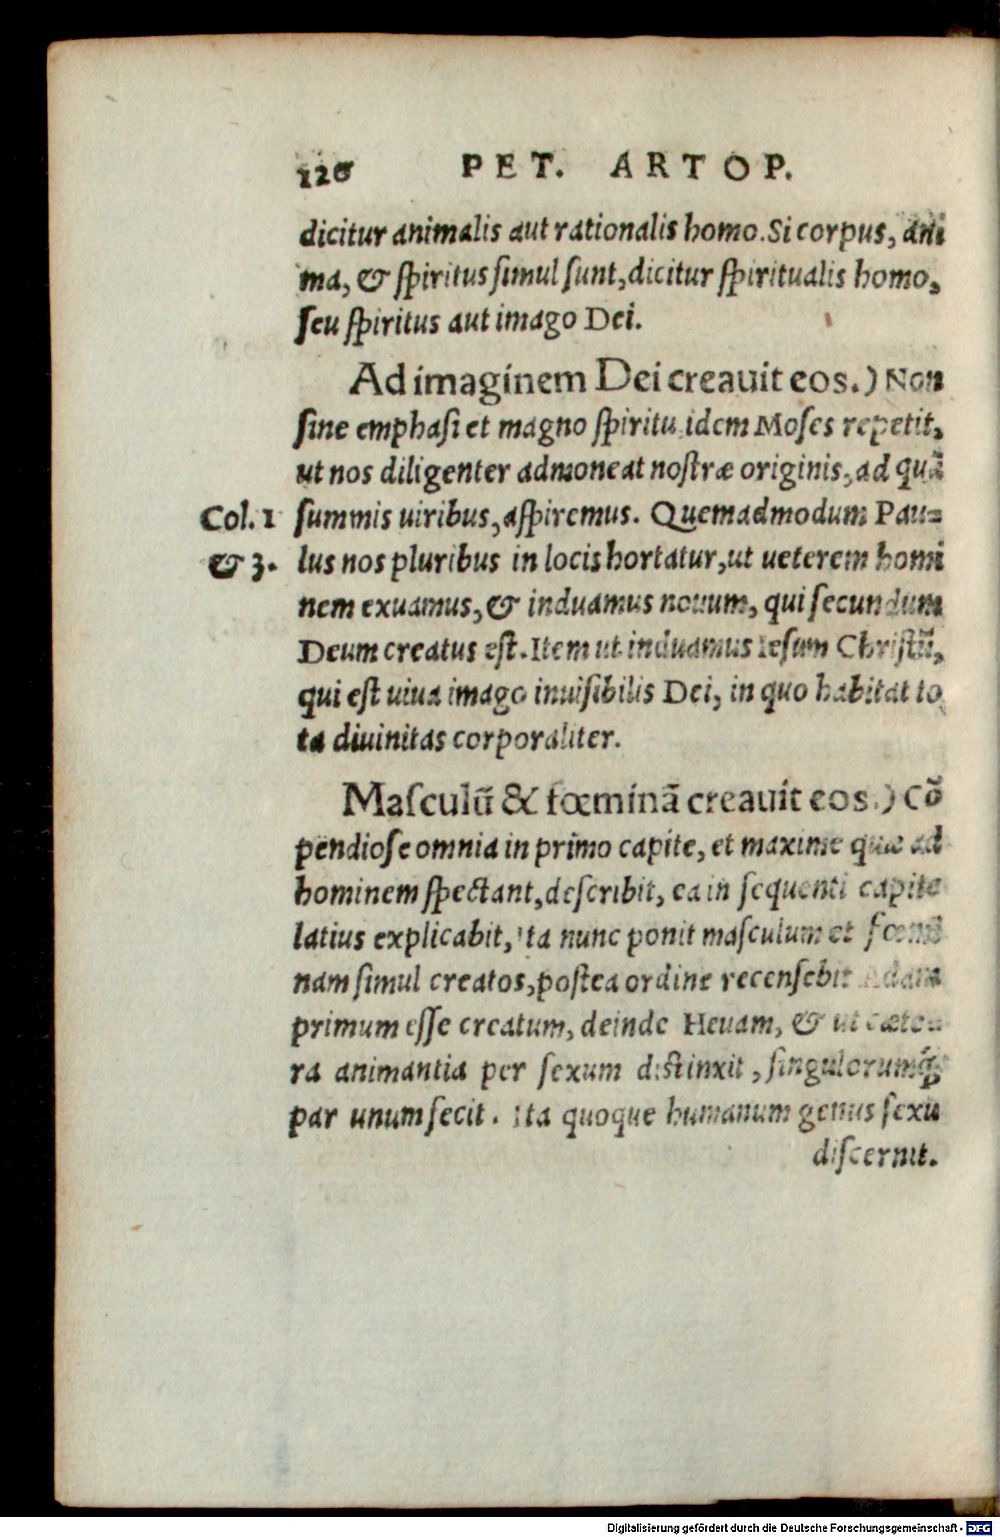 126 PET. ARTOP.
dicitur animalis aut rationalis homo. Si corpus, ani
ma, & ſpiritus ſimul ſunt, dicitur ſpiritualis homo,
ſeu ſpiritus aut imago Dei.
Ad imaginem Dei creauit eos.) Non
ſine emphaſi et magno ſpiritu idem Moſes repetit,
ut nos diligenter admoneat noſtræ originis, ad quā
Col. 1 ſummis uiribus, aſpiremus. Quemadmodum Pau-
& 3. lus nos pluribus in locis hortatur, ut ueterem homi
nem exuamus, & induamus nouum, qui ſecundum
Deum creatus eſt. Item ut induamus Ieſum Chriſtū,
qui eſt uiua imago inuiſibilis Dei, in quo habitat to
ta diuinitas corporaliter.
Maſculū & fœminā creauit eos.) Cō
pendioſe omnia in primo capite, et maxime quæ ad
hominem ſpectant, deſcribit, ea in ſequenti capite
latius explicabit, ita nunc ponit maſculum et fœmi
nam ſimul creatos, poſtea ordine recenſebit Adam
primum eſſe creatum, deinde Heuam, & ut cæte
ra animantia per ſexum diſtinxit, ſingulorumq́;
par unum fecit. Ita quoque humanum genus ſexu
diſcernit.
Digitalisierung gefördert durch die Deutsche Forschungsgemeinschaft - DFG